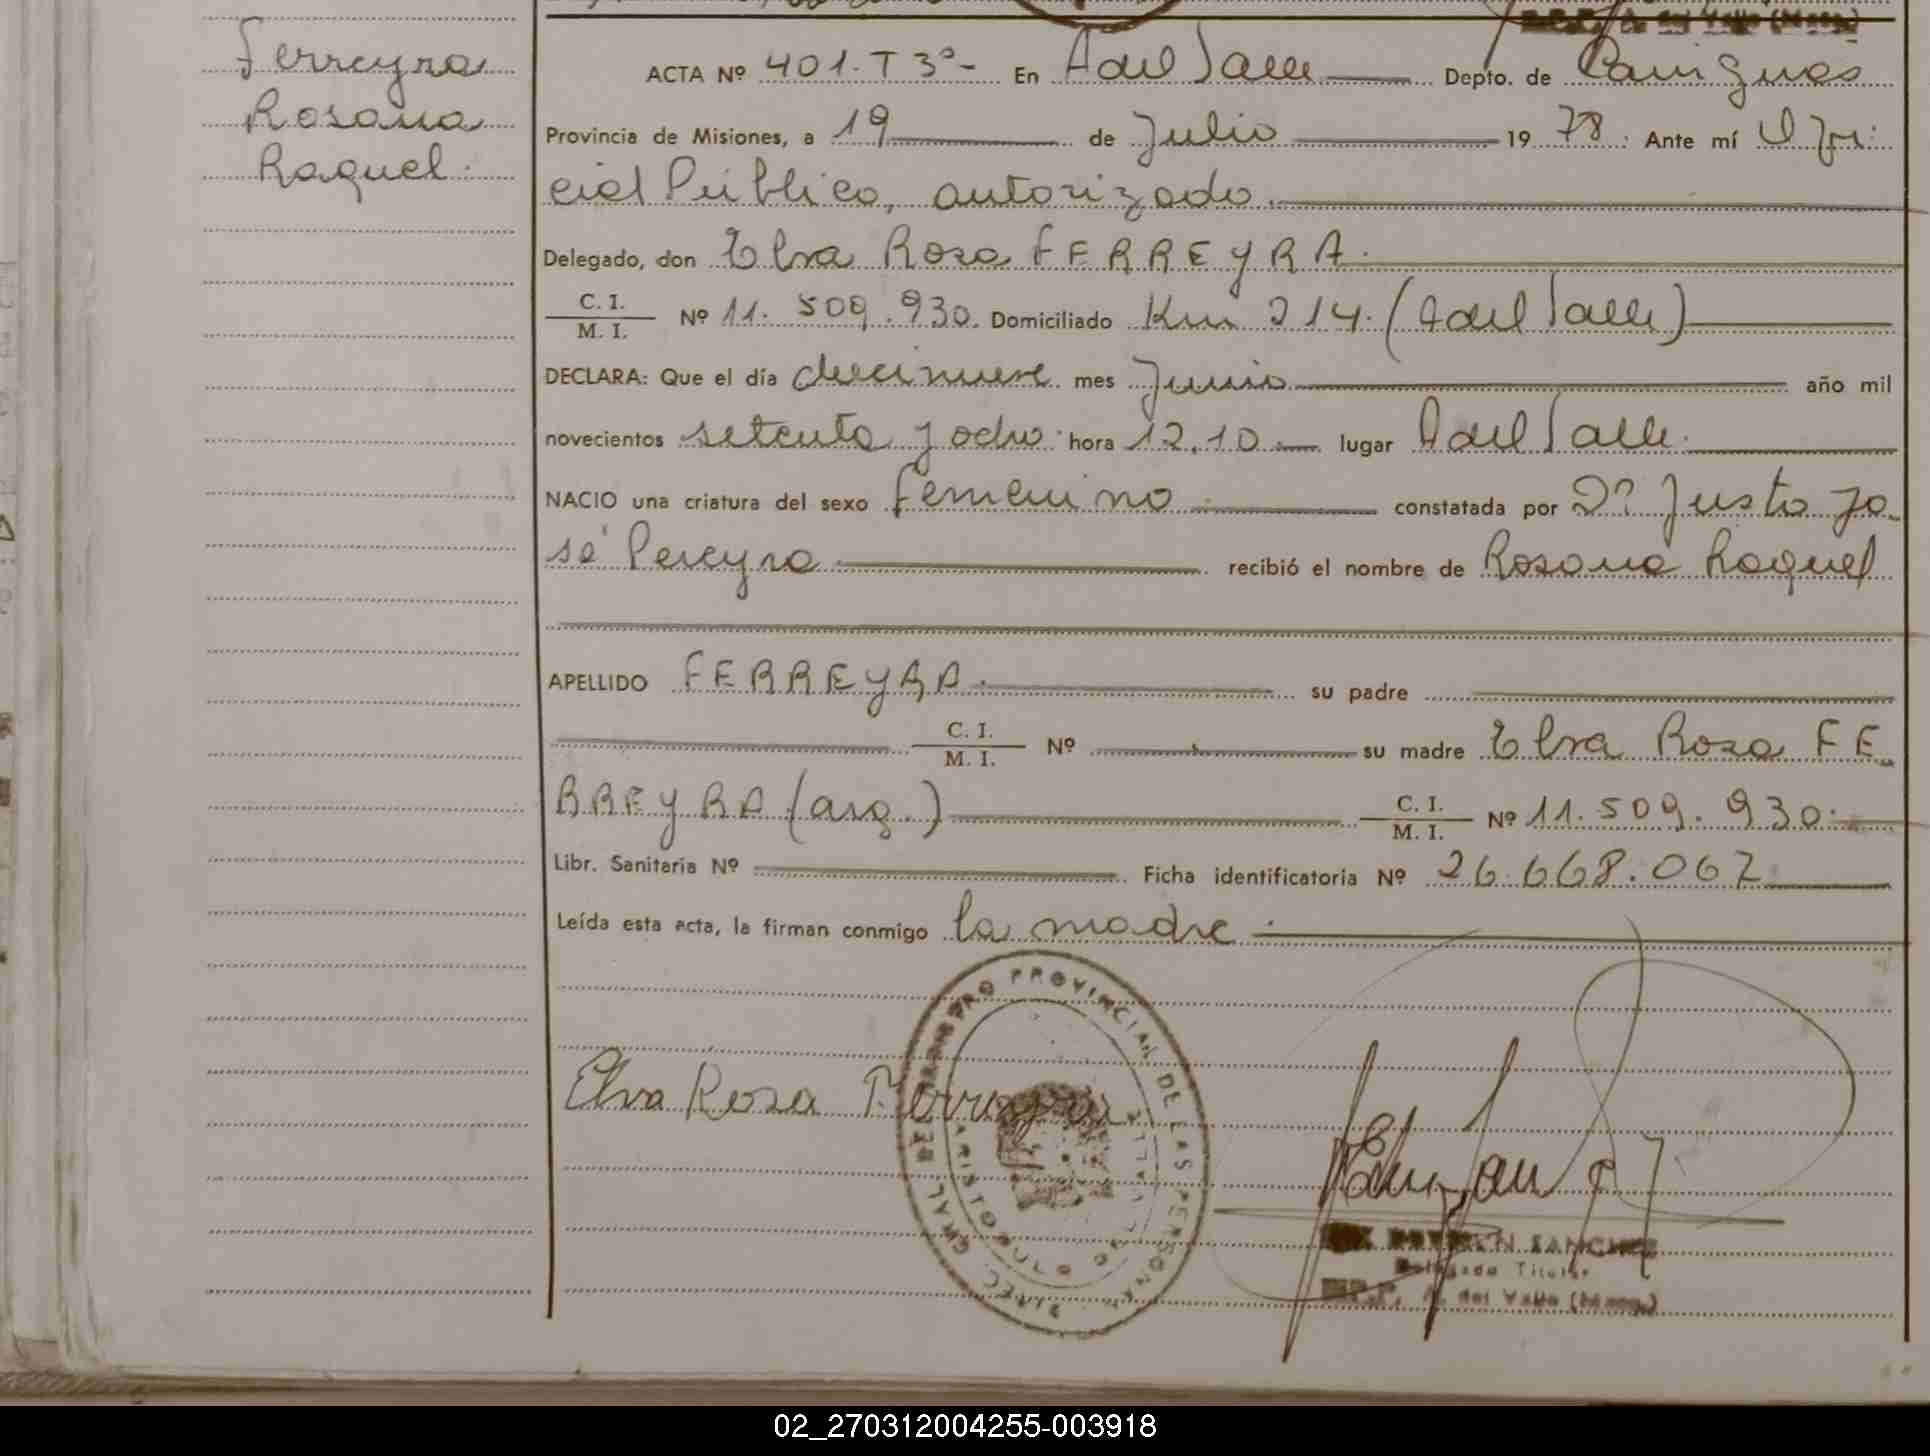 Ferreyra
Rosana
Raquel.
ACTA Nº 401. T 3º- En A del Valle Depto. de Cainguas
Provincia de Misiones, a 19 de Julio 19 78. Ante mí Ofi-
cial Público, autorizado.
Delegado, don Elva Rosa FERREYRA.
C. I.
M. I.
Nº 11. 509.930. Domiciliado Km 214. (A del Valle)
DECLARA: Que el día diecinueve mes Junio año mil
novecientos setenta y ocho. hora 12.10. lugar A del Valle.
NACIO una criatura del sexo femenino constatada por Dº Justo Jo-
sé Pereyra recibió el nombre de Rosana Raquel
APELLIDO FERREYRA. su padre
C. I.
M. I.
Nº su madre Elva Rosa FE-
RREYRA (arg.)
C. I.
M. I.
Nº 11. 509. 930.
Libr. Sanitaria Nº Ficha identificatoria Nº 26.668.067
Leída esta acta, la firman conmigo la madre.
DIREC. GRAL. DEL REGISTRO PROVINCIAL DE LAS PERSONAS
ARISTOBULO DEL VALLE
Elva Rosa Ferreyra
SANCHEZ
Delegado Titular
R.P.P. A. del Valle (Mnes.)
02_270312004255-003918